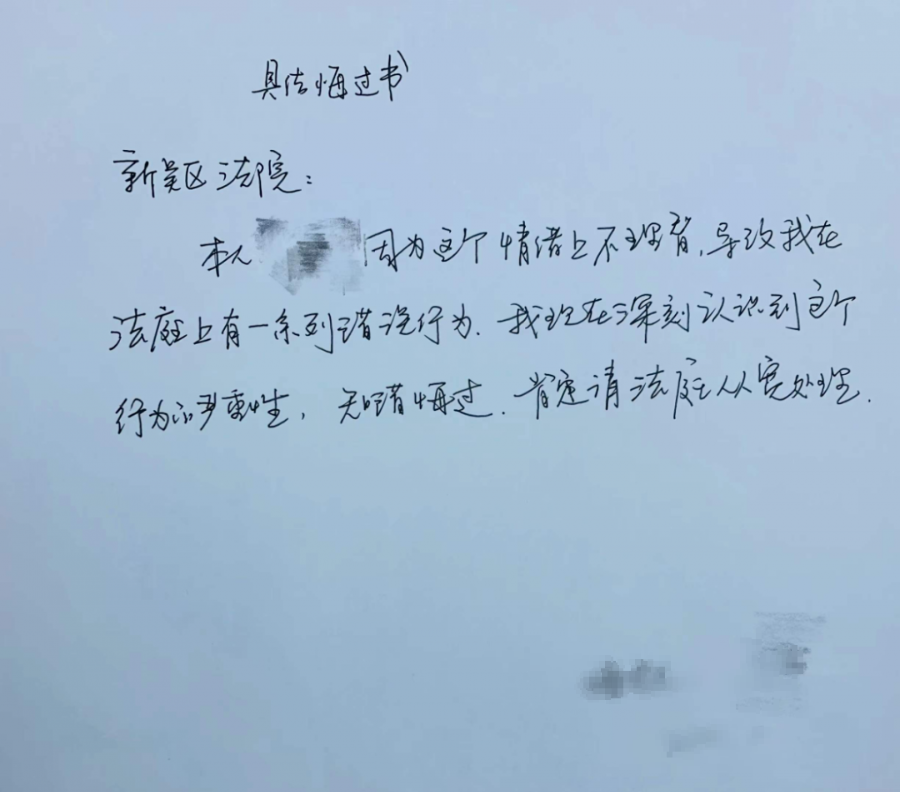 具结悔过书
新吴区法院：
本人 因为这个情绪上不理智，导致我在
法庭上有一系列错误行为．我现在深刻认识到这个
行为的严重性，知错悔过．肯定请法庭从宽处理．